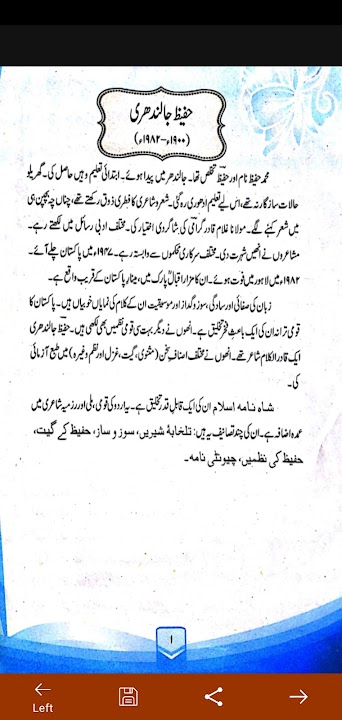 حفیظ جالندھری
(۱۹۰۰ء–۱۹۸۲ء)
محمد حفیظ نام اور حفیظؔ تخلص تھا۔ جالندھر میں پیدا ہوئے۔ ابتدائی تعلیم وہیں حاصل کی۔ گھریلو
حالات سازگار نہ تھے، اس لیے تعلیم ادھوری رہ گئی۔ شعر و شاعری کا فطری ذوق رکھتے تھے، چناں چہ بچپن ہی
میں شعر کہنے لگے۔ مولانا غلام قادر گرامی کی شاگردی اختیار کی۔ مختلف ادبی رسائل میں لکھتے رہے۔
مشاعروں نے انھیں شہرت دی۔ مختلف سرکاری محکموں سے وابستہ رہے۔ ۱۹۴۷ء میں پاکستان چلے آئے۔
۱۹۸۲ء میں لاہور میں فوت ہوئے۔ ان کا مزار اقبالؒ پارک میں، مینارِ پاکستان کے قریب واقع ہے۔
زبان کی صفائی اور سادگی، سوز و گداز اور موسیقیت ان کے کلام کی نمایاں خوبیاں ہیں۔ پاکستان کا
قومی ترانہ ان کی ایک باعثِ فخر تخلیق ہے۔ انھوں نے دیگر بہت سی قومی نظمیں بھی لکھی ہیں۔ حفیظؔ جالندھری
ایک قادر الکلام شاعر تھے۔ انھوں نے مختلف اصنافِ سخن (مثنوی، گیت، غزل اور نظم وغیرہ) میں طبع آزمائی
کی۔
شاہ نامہ اسلام ان کی ایک قابلِ قدر تخلیق ہے۔ یہ اردو کی قومی، ملی اور رزمیہ شاعری میں
عمدہ اضافہ ہے۔ ان کی چند تصانیف یہ ہیں: تلخابۂ شیریں، سوز و ساز، حفیظ کے گیت،
حفیظ کی نظمیں، چیونٹی نامہ۔
۱
Left